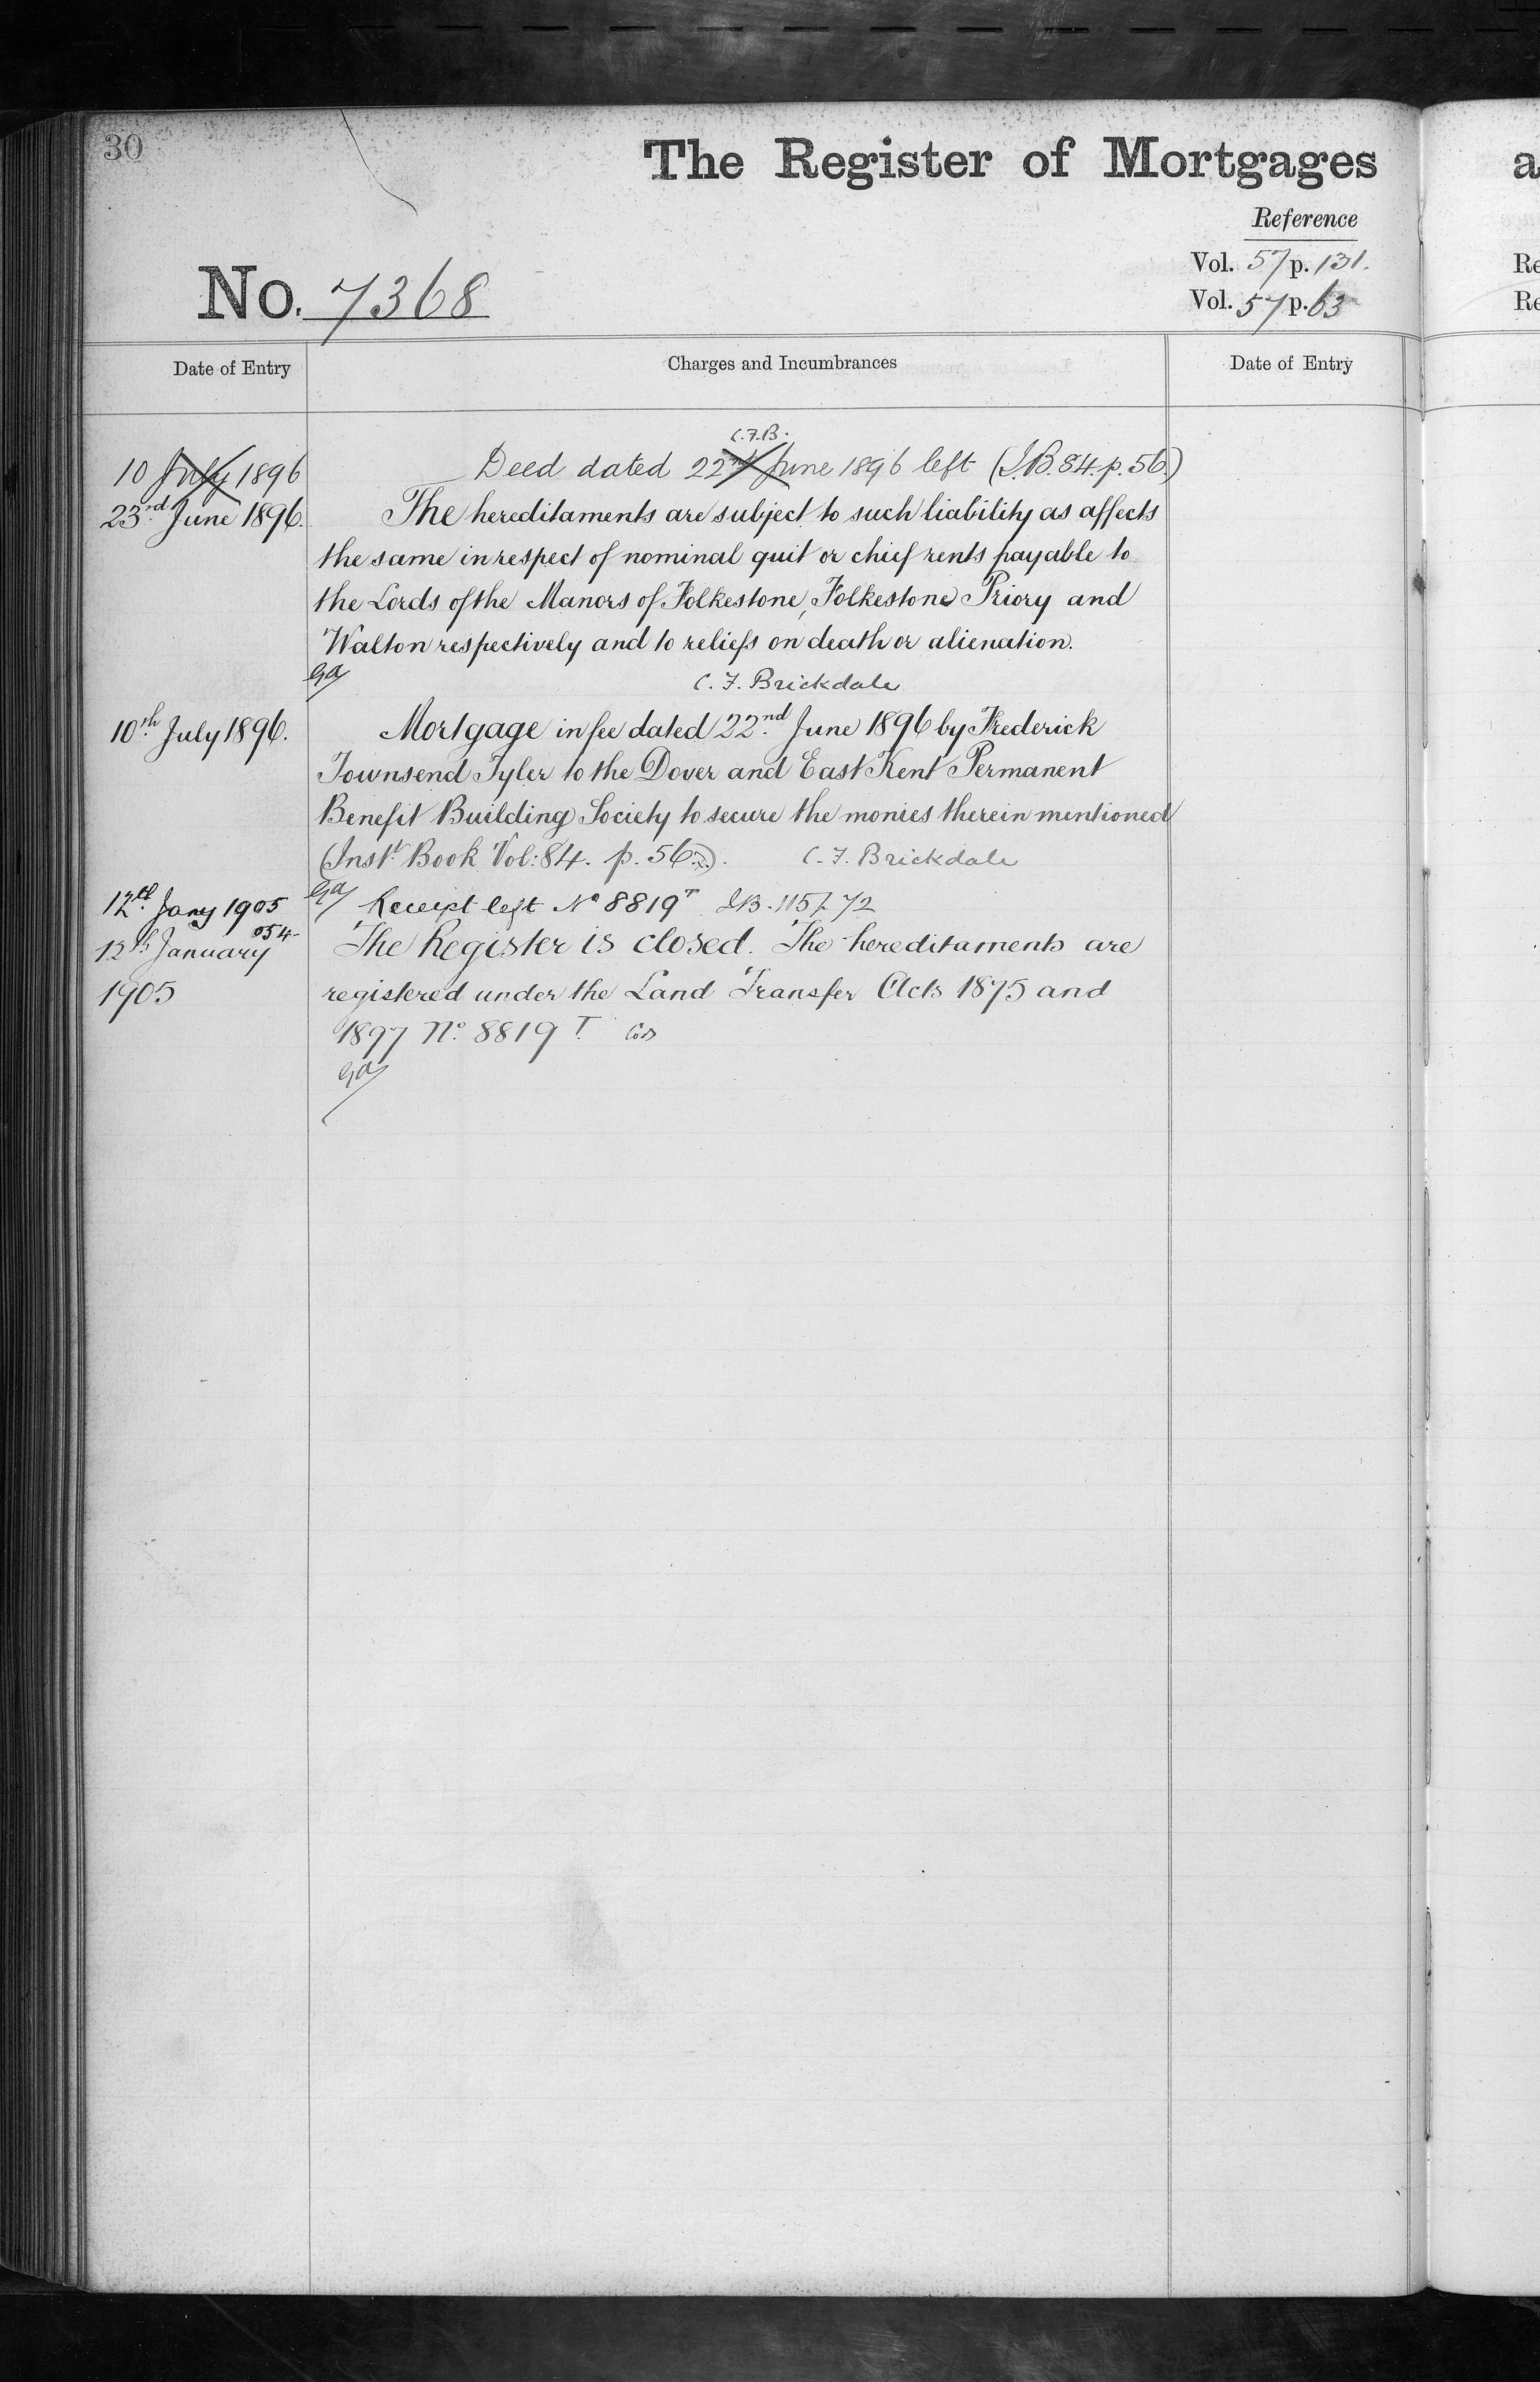 30
The Register of Mortgages
Reference
Vol. 57 p. 131.
No. 7368
Vol. 57 p. 63
Date of Entry
Charges and Incumbrances
Date of Entry
C.F.B.
10 July 1896 Deed dated 22nd June 1896 left (I.B. 84. p. 56.)
23rd June 1896. The hereditaments are subject to such liability as affects
the same in respect of nominal quit or chief rents payable to
the Lords of the Manors of Folkestone, Folkestone Priory and
Walton respectively and to reliefs on death or alienation.
C. F. Brickdale
10th July 1896. Mortgage in fee dated 22nd June 1896 by Frederick
Townsend Tyler to the Dover and East Kent Permanent
Benefit Building Society to secure the monies therein mentioned
(Inst. Book Vol: 84. p. 56.). C. F. Brickdale
12th Jany 1905 Receipt left No 8819T IB. 115/. 72
054
12th January The Register is closed. The hereditaments are
1905 registered under the Land Transfer Acts 1875 and
1897 No. 8819 T.
a
Re
Re